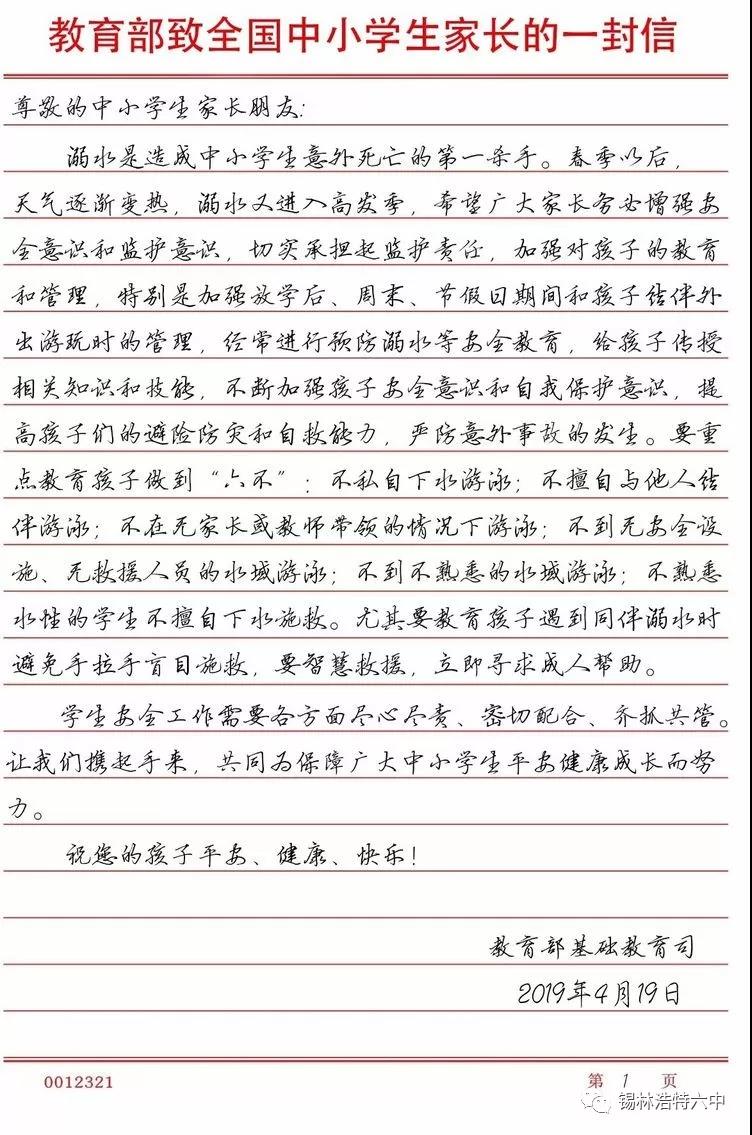 教育部致全国中小学生家长的一封信
尊敬的中小学生家长朋友：
溺水是造成中小学生意外死亡的第一杀手。春季以后，
天气逐渐变热，溺水又进入高发季，希望广大家长务必增强安
全意识和监护意识，切实承担起监护责任，加强对孩子的教育
和管理，特别是加强放学后、周末、节假日期间和孩子结伴外
出游玩时的管理，经常进行预防溺水等安全教育，给孩子传授
相关知识和技能，不断加强孩子安全意识和自我保护意识，提
高孩子们的避险防灾和自救能力，严防意外事故的发生。要重
点教育孩子做到“六不”：不私自下水游泳；不擅自与他人结
伴游泳；不在无家长或教师带领的情况下游泳；不到无安全设
施、无救援人员的水域游泳；不到不熟悉的水域游泳；不熟悉
水性的学生不擅自下水施救。尤其要教育孩子遇到同伴溺水时
避免手拉手盲目施救，要智慧救援，立即寻求成人帮助。
学生安全工作需要各方面尽心尽责、密切配合、齐抓共管。
让我们携起手来，共同为保障广大中小学生平安健康成长而努
力。
祝您的孩子平安、健康、快乐！
教育部基础教育司
2019年4月19日
0012321 第 1 页
锡林浩特六中